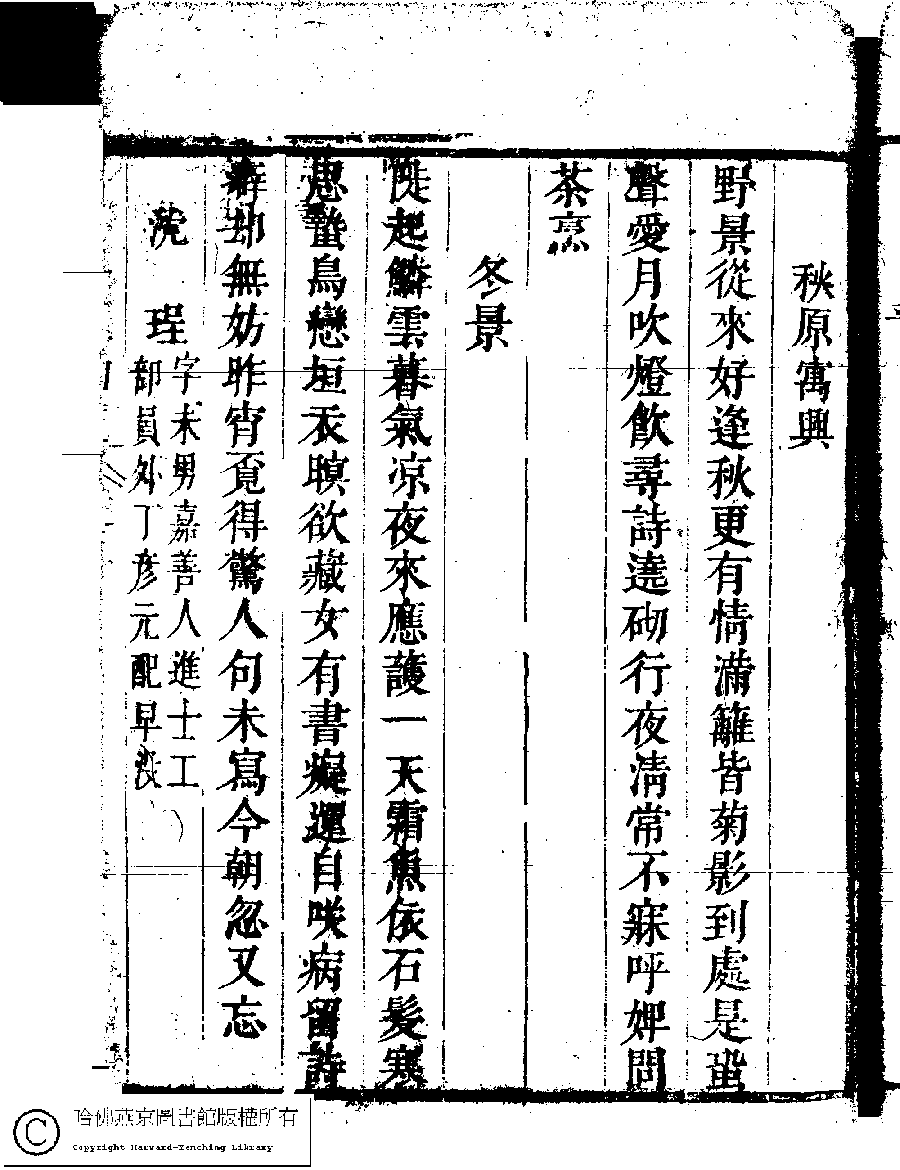 秋原寓興
野景從來好逢秋更有情滿籬皆菊影到處是蛩
聲愛月吹燈飲尋詩遶砌行夜淸常不寐呼婢問
茶烹
冬景
起鱗雲暮氣凉夜來應護一天霜魚依石髮寒
思蟄鳥戀垣衣暝欲藏女有書癡還自咲病留詩
癖却無妨昨宵覔得驚人句未寫今朝忽又忘
沈 珵
字未男嘉善人進士工
部員外丁彥元配早沒
哈佛燕京圖書館版權所有
Copyright Harvard-Yenching Library